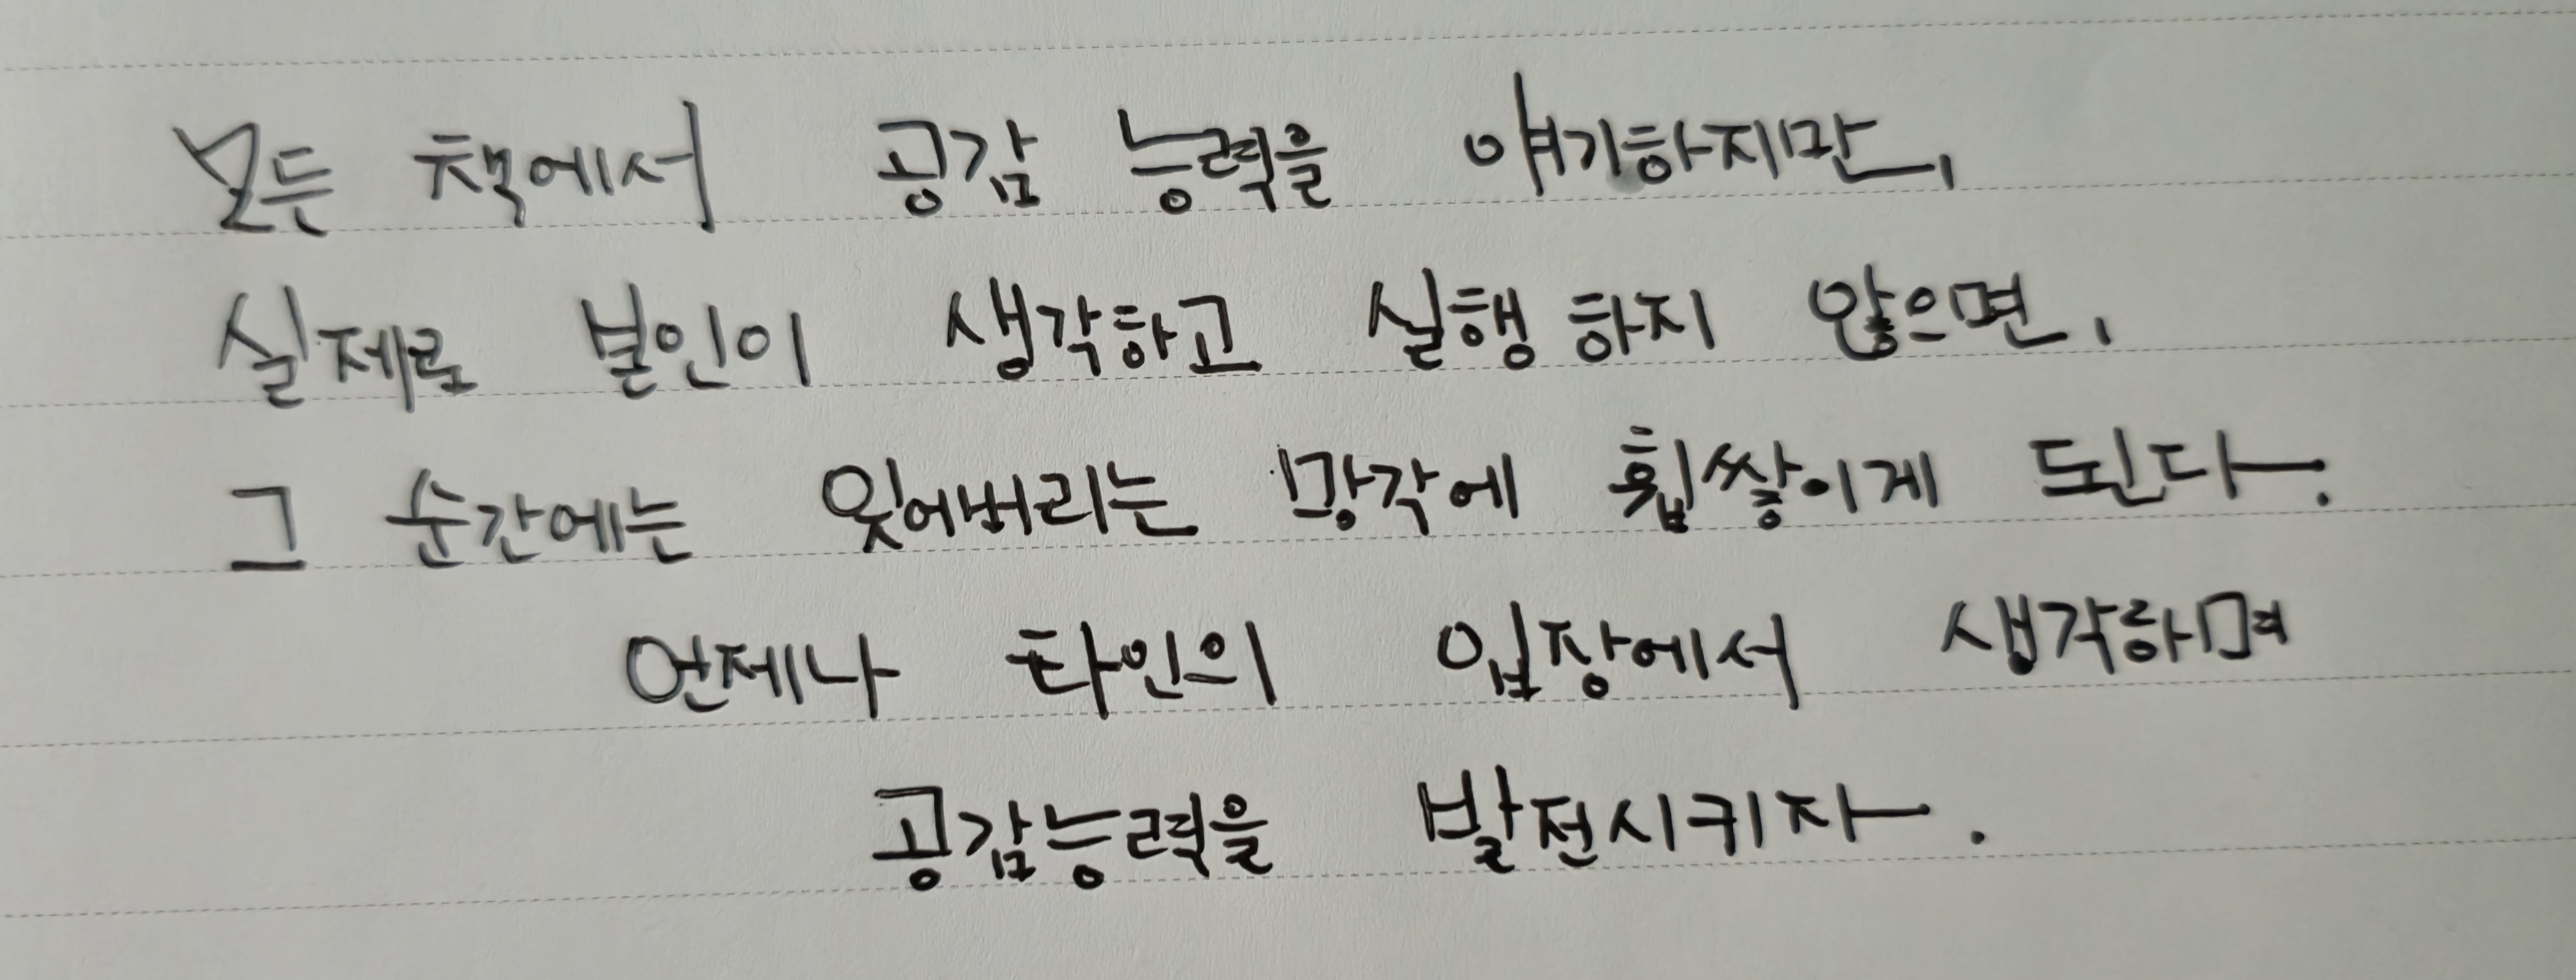 모든 책에서 공감 능력을 얘기하지만,
실제로 본인이 생각하고 실행 하지 않으면,
그 순간에는 잊어버리는 망각에 휩쌓이게 된다.
언제나 타인의 입장에서 생각하며
공감능력을 발전시키자.